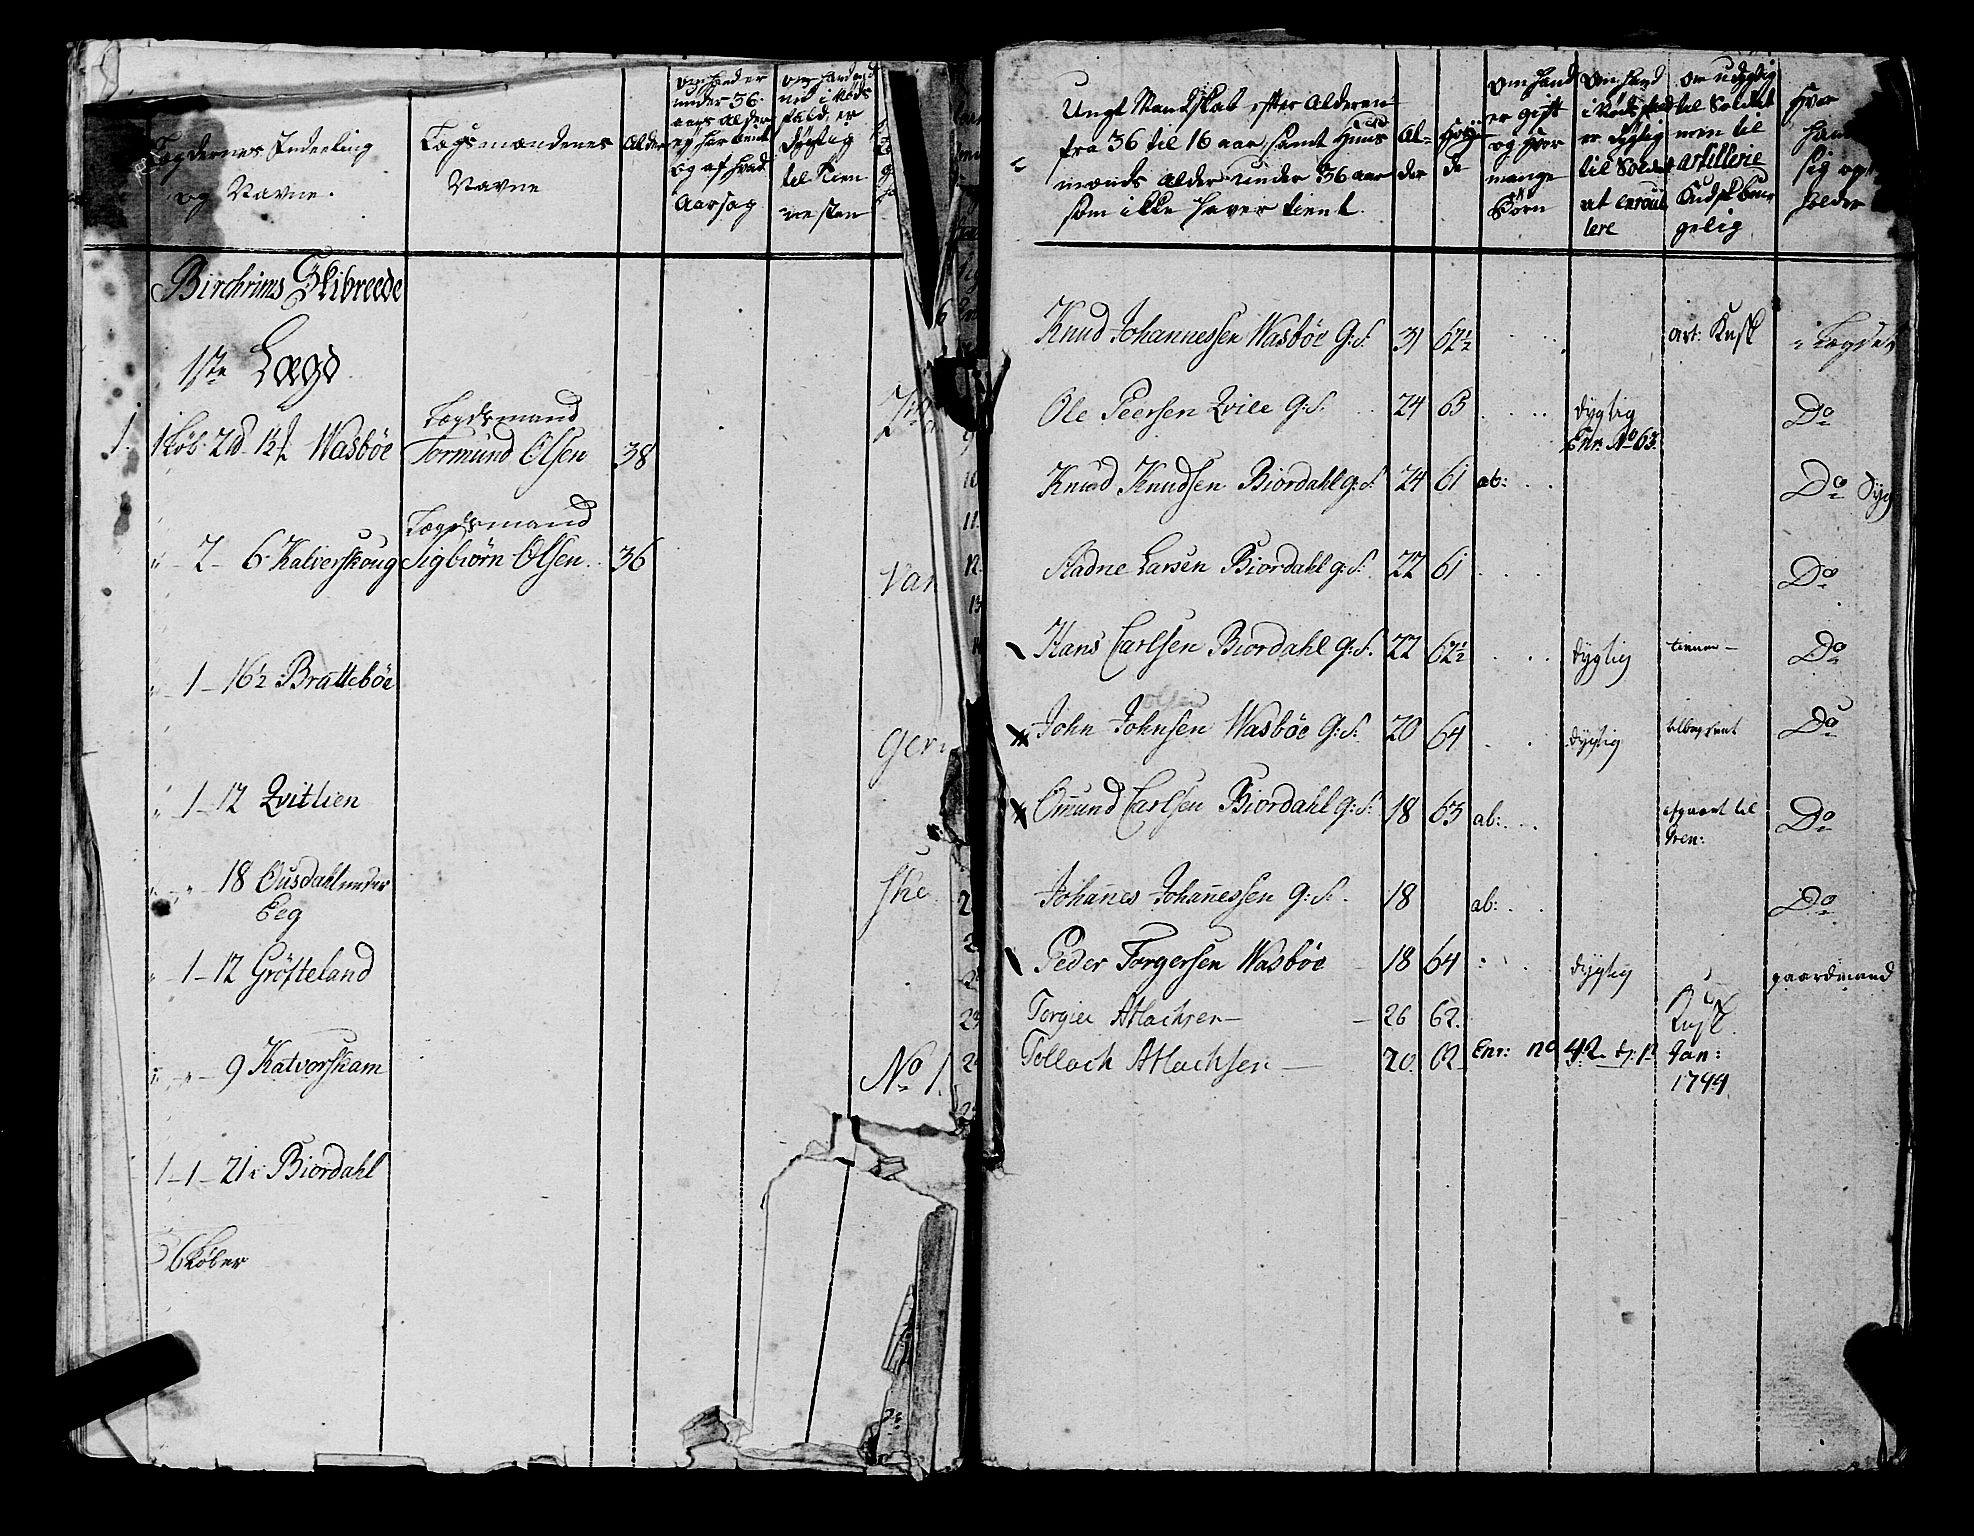 Lægdernes Indeeling
og Navne.
Lægsmændenes
Navne
Alder
om hand er
under 36
aars Alder
og har tient
og af hvad
Aarsag
er
dygtig
til Tien
nesten
Birchrims Skibreede
1ste Lægd
1. 1 Løb: 2 d 13 Wasbøe
Lægdsmand
Tormund Olsen 38
" - 2 - 6 Katverskoug
Lægdsmand
Sigbiørn Olsen 36
" 1 - 16½ Brattebøe
" 1 - 12 Qvitlien
" " 18 Ousdahl under
Eeg
" 1 - 12 Grøfteland
" " - 9 Katvorskam
1 - 1 - 21 Biordahl
6 Løber
Var
Ger
No 1.
Ungt Mandskab efter Alderen
fra 36 til 16 aar, samt Huus
mænds Alder under 36 aar
som ikke haver tient.
Al-
der
Høy-
de
om hand
er gift
og hvor
mange
Børn
om hand
i Nøds fald
er dygtig
til Soldat
at enroul
lere
om udygtig
til Soldat
men til
Artillerie
Kudsk brue
gelig
hvor
hand
sig op
holder
Knud Johannessen Wasbøe G:S. 31 62½ art: Kusk i Lægdet
Ole Peersen Qvile G:S. 24 63 dygtig Do
Enr. No 63.
Knud Knudsen Biordahl g:S. 24 61 ab: Do dyg
Aadne Larsen Biordahl g:S. 22 61 Do
Hans Carlsen Biordahl G:S. 22 62½ dygtig Do
John Johnsen Wasbøe G:S. 20 64 dygtig Do
Omund Carlsen Biordahl G:S. 18 63 ab: Do
Johannes Johannessen G:S. 18 ab: Do
Peder Torgersen Wasbøe 18 64 dygtig gaardmand
Torgier Atlachsen 26 62. Kusk.
Tollach Atlachsen 20. 62 Enr: no 42 Jan:
1794.